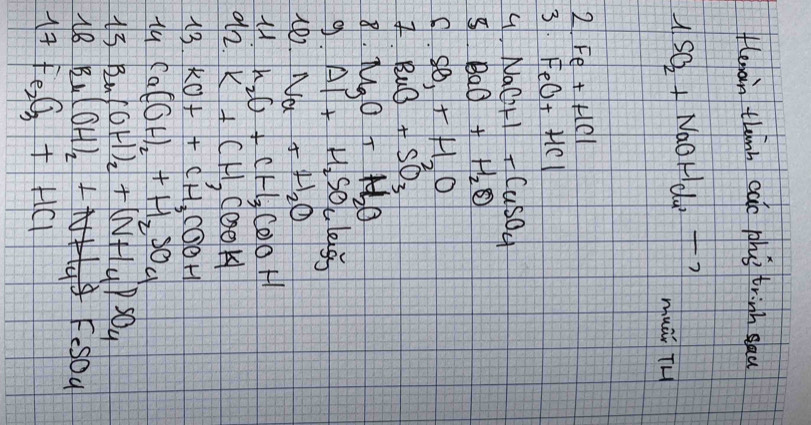 Hoàn thành các phg trình sau
1. SO2 + NaOH dư —> muối TH
2. Fe + HCl
3. FeO + HCl
4. NaOH + CuSO4
5. BaO + H2O
6. SO3 + H2O
7. BaO + SO3
8. MgO + H2O
9. Al + H2SO4 loãg
10. Na + H2O
11. K2O + CH3COOH
12. K + CH3COOH
13. KOH + CH3COOH
14 Ca(OH)2 + H2SO4
15 Ba(OH)2 + (NH4)2SO4
16 Ba(OH)2 + FeSO4
17 Fe2O3 + HCl